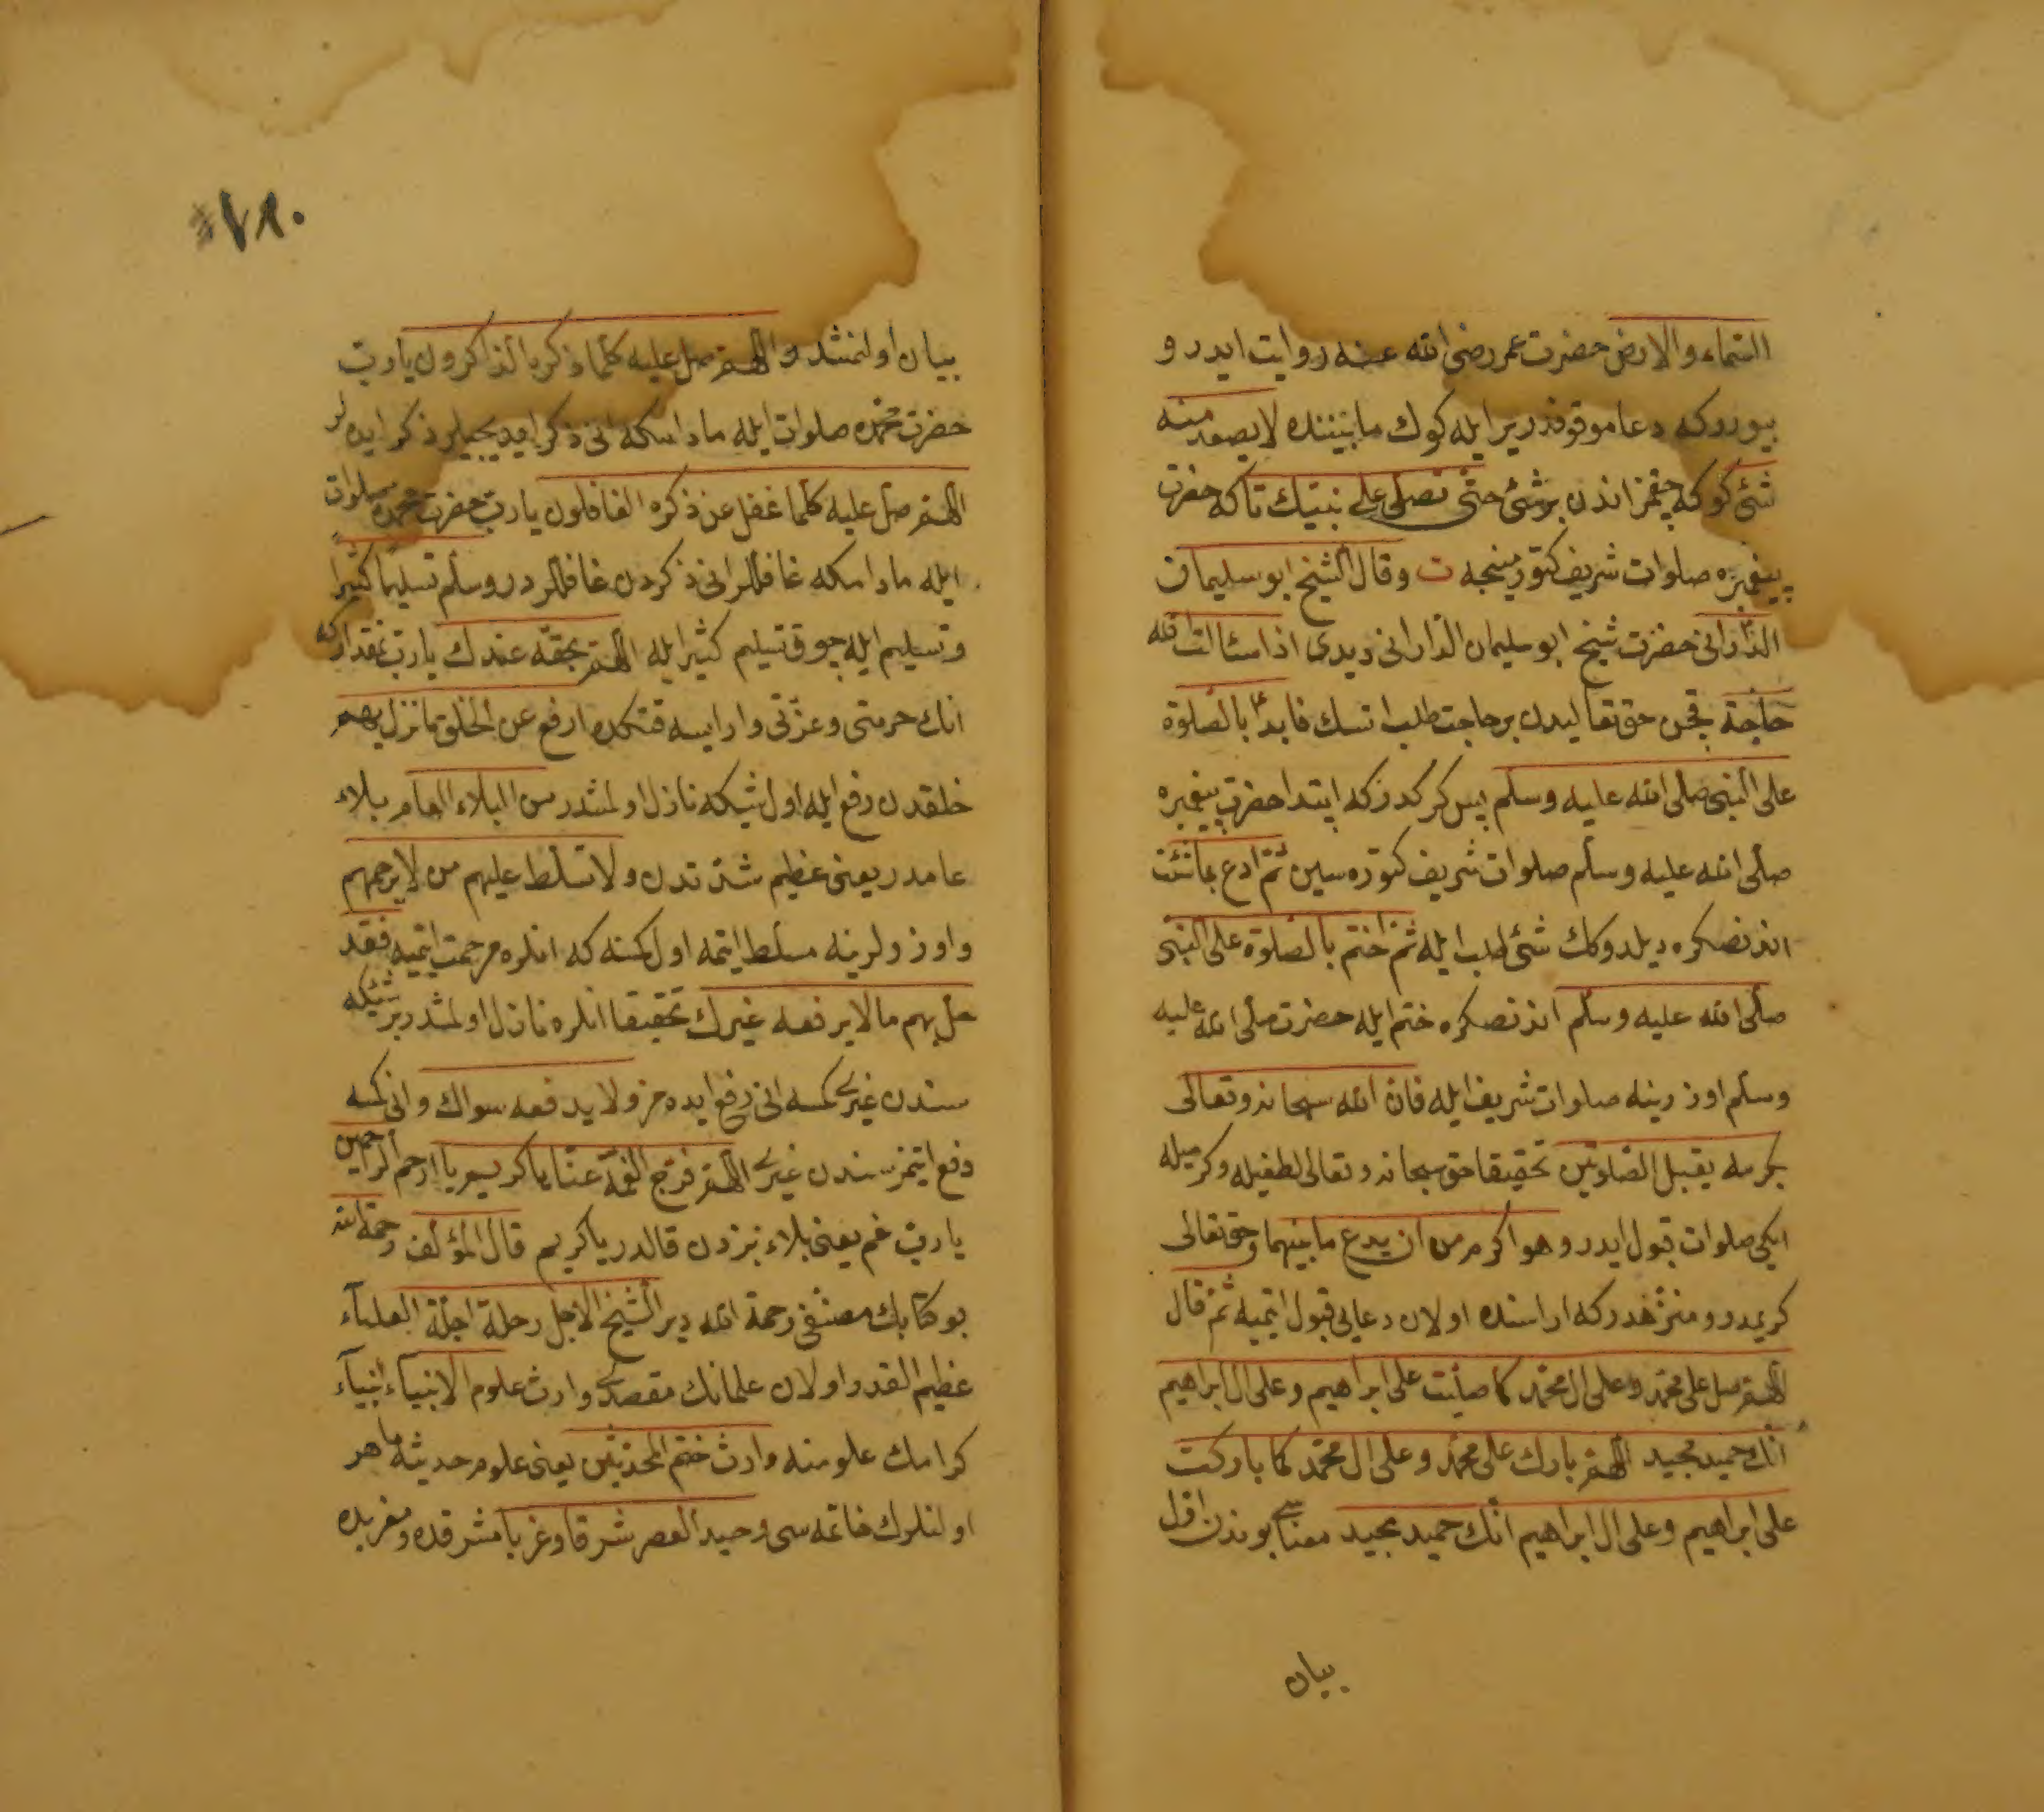 السماء والارض حضرت عمر رضى الله عنه روايت ايدر و
بيوردوكه دعا موقوفدر ير ايله كوك مابيننده لا يصعد منه
شئ كوكه چقمز اندن بر شئ حتى تصلى على نبيك تاكه حضرت
پيغمبره صلوات شريف كتورمينجه ت وقال الشيخ ابو سليمان
الدارانى حضرت شيخ ابو سليمان الدارانى ديدى اذا سئالت الله
حاجة قچن حق تعاليدن بر حاجت طلب اتسك فابدأ بالصلوة
على النبى صلى الله عليه وسلم پس كركدركه ابتدا حضرت پيغمبره
صلى الله عليه وسلم صلوات شريف كتوره سين ثم ادع بما شئت
اندنصكره ديلدوكك شئ طلب ايله ثم اختم بالصلوة على النبى
صلى الله عليه وسلم اندنصكره ختم ايله حضرت صلى الله عليه
وسلم اوزرينه صلوات شريف ايله فان الله سبحانه وتعالى
بكرمه يقبل الصلوتين تحقيقا حق سبحانه وتعالى لطفيله وكرميله
ايكى صلوات قبول ايدر وهو اكرم من ان يدع ما بينهما وحق تعالى
كريمدر ومنزهدركه اراسنده اولان دعايى قبول ايتميه ثم قال
اللهم صل على محمد وعلى ال محمد كما صليت على ابراهيم وعلى ال ابراهيم
انك حميد مجيد اللهم بارك على محمد وعلى ال محمد كما باركت
على ابراهيم وعلى ال ابراهيم انك حميد مجيد معناسى بوندن اول
بيان
٧٨٠
بيان اولنمشدر اللهم صل عليه كلما ذكره الذاكرون يا رب
حضرت محمده صلوات ايله مادامكه انى ذكر ايديجيلر ذكر ايده لر
اللهم صل عليه كلما غفل عن ذكره الغافلون يا رب حضرت محمده صلوات
ايله مادامكه غافللر انى ذكردن غافللردر وسلم تسليما كثيرا
وتسليم ايله چوق تسليم كثير ايله اللهم بحقه عندك يا رب بمقداركه
انك حرمتى وعزتى وار ايسه قتكده ارفع عن الخلق ما نزل بهم
خلقدن رفع ايله اول شيكه نازل اولمشدر من البلاء العام بلاء
عامدر يعنى عظيم شدتدن ولا تسلط عليهم من لا يرحمهم
واوزرلرينه مسلط ايتمه اول كمسنه كه انلره مرحمت ايتميه فقد
حل بهم ما لا يرفعه غيرك تحقيقا انلره نازل اولمشدر بر شيكه
سندن غيرى كمسه انى رفع ايده مز ولا يدفعه سواك وانى كمسه
دفع ايتمز سندن غيرى اللهم فرج الغمه عنا يا كريم يا ارحم الراحمين
يا رب غم يعنى بلاء بزدن قالدر يا كريم قال المؤلف رحمة الله
بو كتابك مصنفى رحمة الله دير الشيخ الاجل رحلة اجلة العلماء
عظيم القدر اولان علمانك مقصدى وارث علوم الانبياء انبياء
كرامك علومنه وارث ختم المحدثين يعنى علوم حديثه ماهر
اولنلرك خاتمه سى وحيد العصر شرقا وغربا مشرقده ومغربده